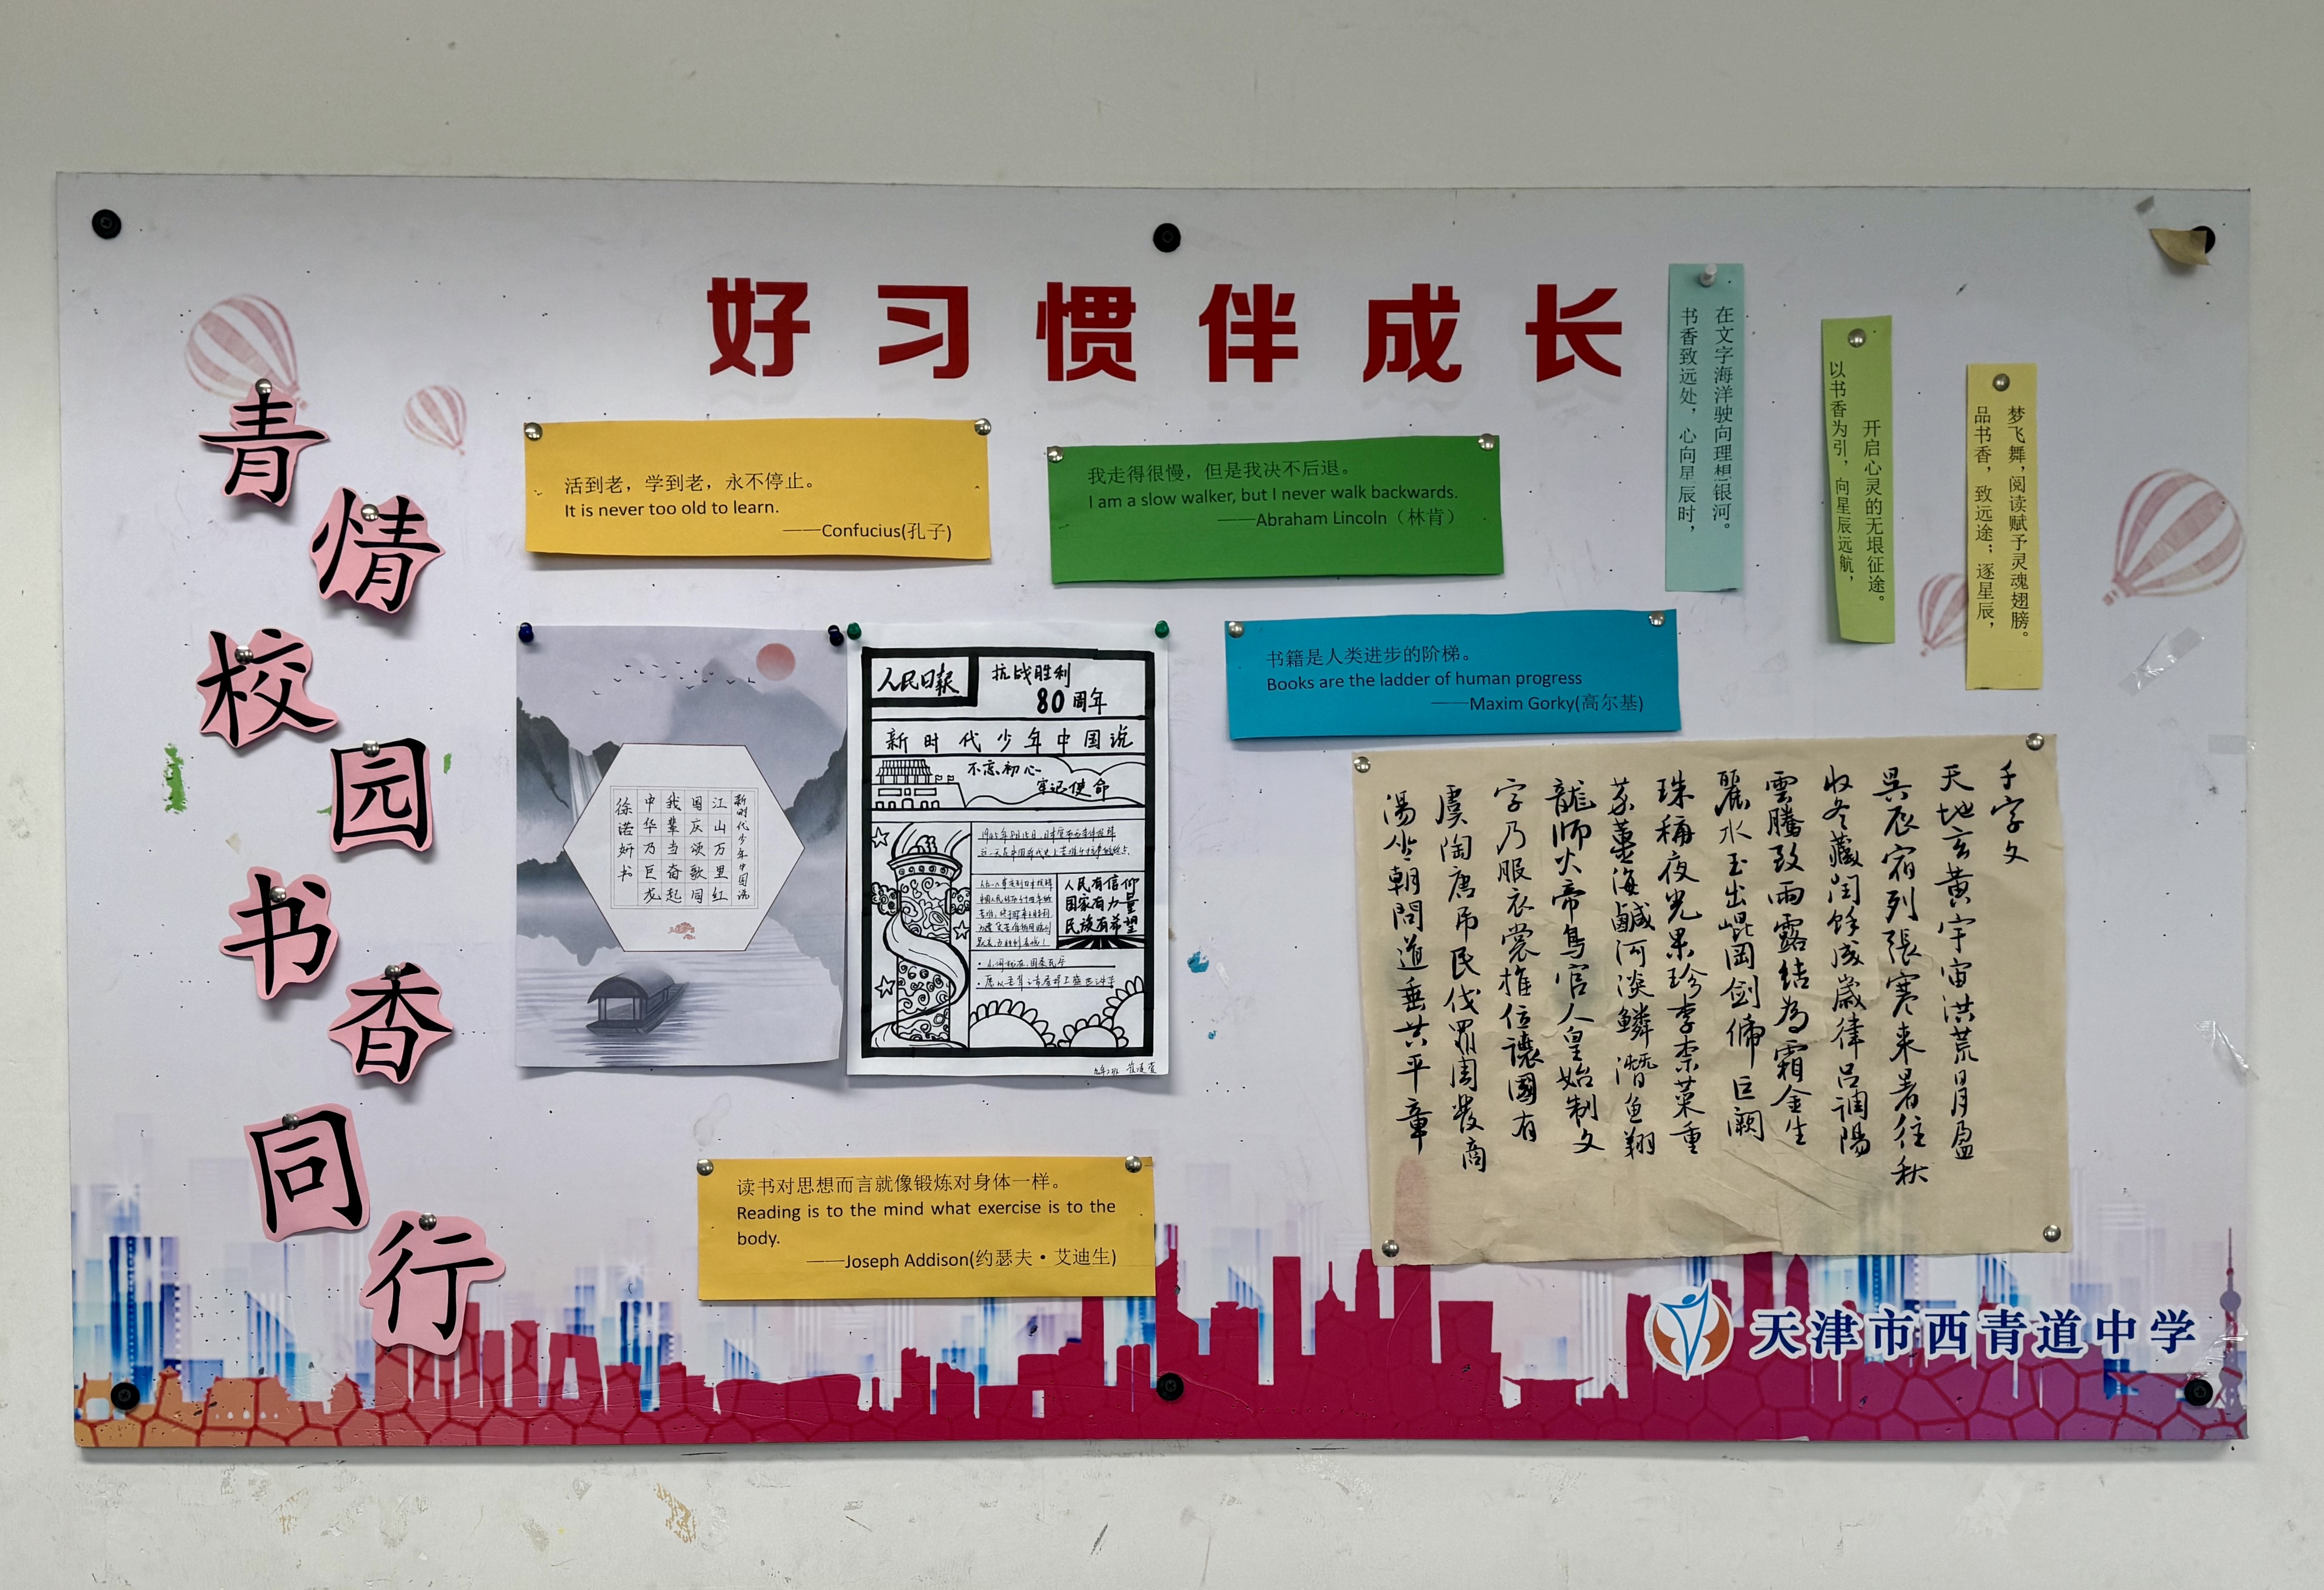 好习惯伴成长
青情校园书香同行
活到老，学到老，永不停止。
It is never too old to learn.
——Confucius(孔子)
我走得很慢，但是我决不后退。
I am a slow walker, but I never walk backwards.
——Abraham Lincoln（林肯）
在文字海洋驶向理想银河。
书香致远处，心向星辰时，
开启心灵的无垠征途。
以书香为引，向星辰远航，
梦飞舞，阅读赋予灵魂翅膀。
品书香，致远途；逐星辰，
书籍是人类进步的阶梯。
Books are the ladder of human progress
——Maxim Gorky(高尔基)
新时代少年中国说
江山万里红
国庆颂歌同
我辈当奋起
中华乃巨龙
徐诺妍书
人民日报
抗战胜利
80周年
新时代少年中国说
不忘初心
牢记使命
人民有信仰
国家有力量
民族有希望
千字文
天地玄黄宇宙洪荒日月盈
昃辰宿列張寒来暑往秋
收冬藏閏餘成歲律吕調陽
雲騰致雨露結為霜金生
麗水玉出崐岡剑䣛巨阙
珠稱夜光果珍李柰菜重
芥薑海鹹河淡鳞潛鱼翔
龍師火帝鳥官人皇始制文
字乃服衣裳推位讓國有
虞陶唐吊民伐罪周發商
湯坐朝問道垂共平章
读书对思想而言就像锻炼对身体一样。
Reading is to the mind what exercise is to the
body.
——Joseph Addison(约瑟夫·艾迪生)
天津市西青道中学